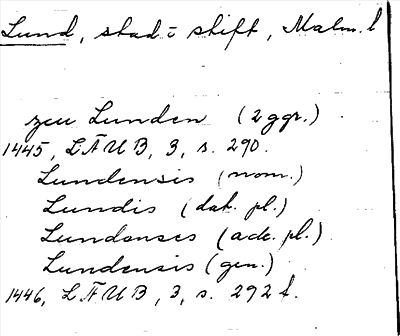 Lund, stad i stift, Malm. l
zeu Lunden (2 ggr.)
1445, LÄUB, 3, s. 290.
Lundensis (nom.)
Lundis (dat. pl.)
Lundenses (ack. pl.)
Lundensis (gen.)
1446, LÄUB, 3, s. 292 f.